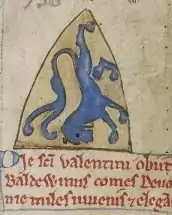 Die sc̄i valentini obiit
Baldewinus comes Devo
nie miles iuvenis ⁊ elega